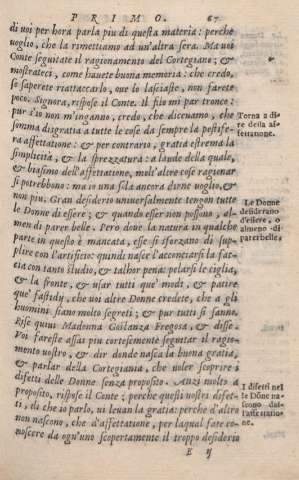 PRIMO. 67
di voi per hora parla piu di questa materia: perche
voglio, che la rimettiamo ad un'altra sera. Ma voi
Conte seguitate il ragionamento del Cortegiano; &
mostrateci, come hauete buona memoria: che credo,
se saperete riattaccarlo, oue lo lasciaste, non farete
poco. Signora, rispose il Conte. Il filo mi par tronco:
pur s'io non m'inganno, credo, che diceuamo, che
somma disgratia a tutte le cose dà sempre la pestife-
ra affettatione: & per contrario, gratia estrema la
simplicità, & la sprezzatura: a laude della quale,
& biasimo dell'affettatione, molt'altre cose ragionar
si potrebbono: ma io una sola ancora dirne voglio, &
non piu. Gran desiderio universalmente tengon tutte
le Donne di essere; & quando esser non possono, al-
men di parer belle. Pero doue la natura in qualche
parte in questo è mancata, esse si sforzano di sup-
plire con l'artificio: quindi nasce l'acconciarsi la fac-
cia con tanto studio, & talhor pena: pelarsi le ciglia,
& la fronte, & usar tutti que' modi, & patire
que' fastidij, che voi altre Donne credete, che a gli
huomini siano molto segreti; & pur tutti si sanno.
Rise quiui Madonna Costanza Fregosa, & disse.
Voi fareste assai piu cortesemente seguitar il ragio-
mento vostro, & dir donde nasca la buona gratia,
& parlar della Cortegiania, che voler scoprire i
difetti delle Donne senza proposito. Anzi molto a
proposito, rispose il Conte: perche questi vostri difet-
ti, di che io parlo, vi leuan la gratia: perche d'altro
non nascono, che d'affettatione, per laqual fate co-
noscere ad ogn'uno scopertamente il troppo desiderio
E ij
Torna a di-
re della af-
fettatione.
Le Donne
desiderano
d'essere, o
almeno di
parer belle.
I difetti nel
le Donne na-
scono dal-
l'affettatio-
ne.